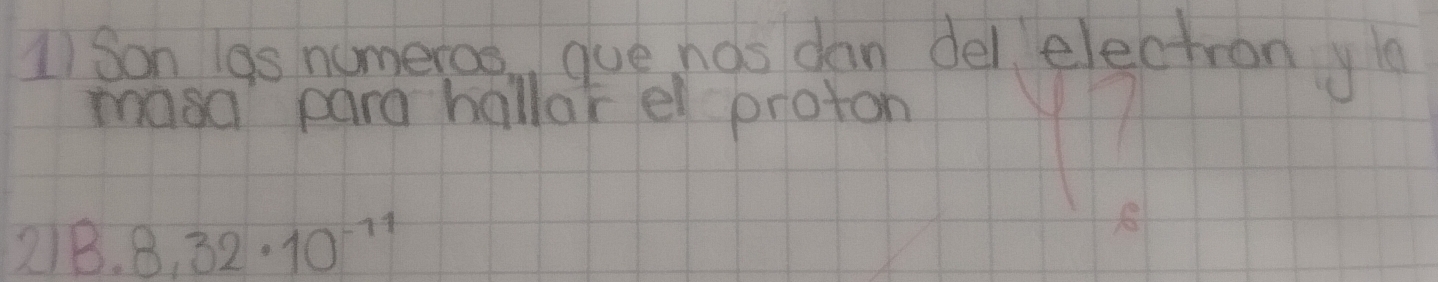 1) Son los numeros que nos dan del electron y la
masa para hallar el proton
2) B. 8,32 · 10⁻¹¹